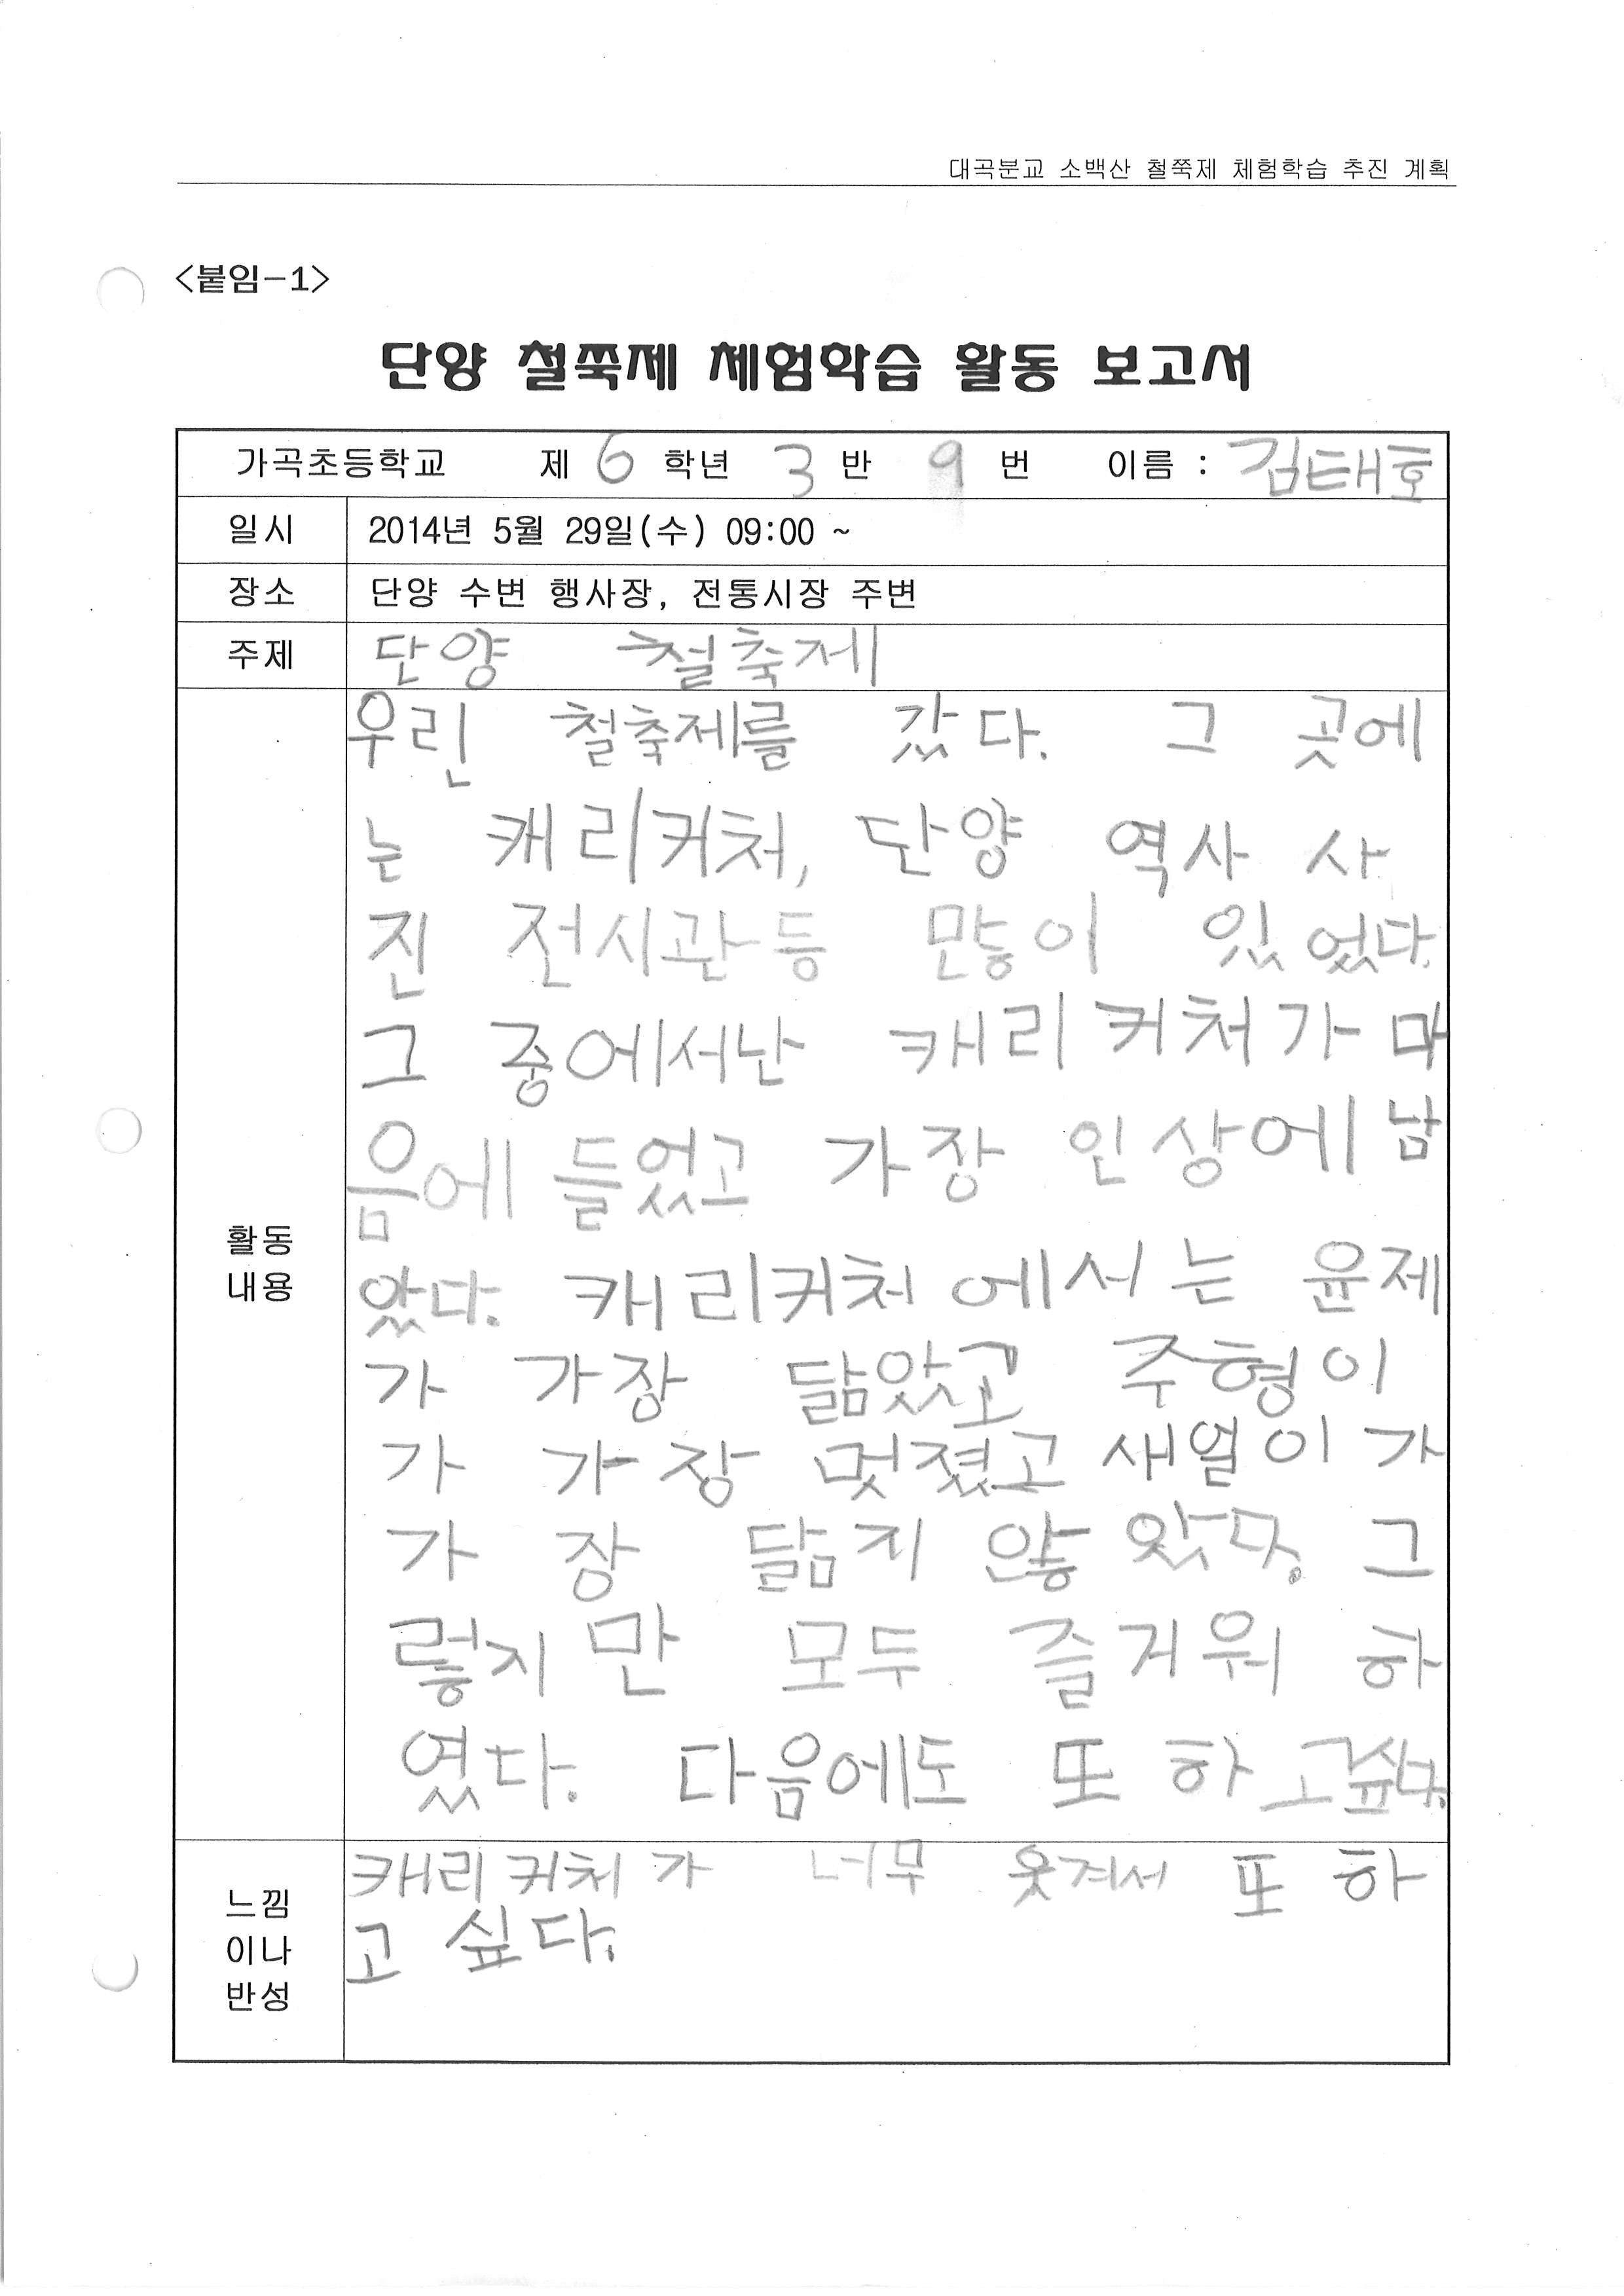 대곡분교 소백산 철쭉제 체험학습 추진 계획
<붙임-1>
단양 철쭉제 체험학습 활동 보고서
가곡초등학교 제 6 학년 3 반 9 번 이름 : 김태호
일시 2014년 5월 29일(수) 09:00 ~
장소 단양 수변 행사장, 전통시장 주변
주제 단양 철축제
우린 철축제를 갔다. 그 곳에
는 캐리커처, 단양 역사 사
진 전시관등 많이 있었다.
그 중에서난 캐리커처가 마
음에 들었고 가장 인상에 남
았다. 캐리커처에서는 윤제
가 가장 닮았고 주형이
가 가장 멋졌고 새열이가
가장 닮지 않았다. 그
렇지만 모두 즐거워 하
였다. 다음에도 또 하고싶다.
활동
내용
캐리커처가 너무 웃겨서 또 하
고 싶다.
느낌
이나
반성